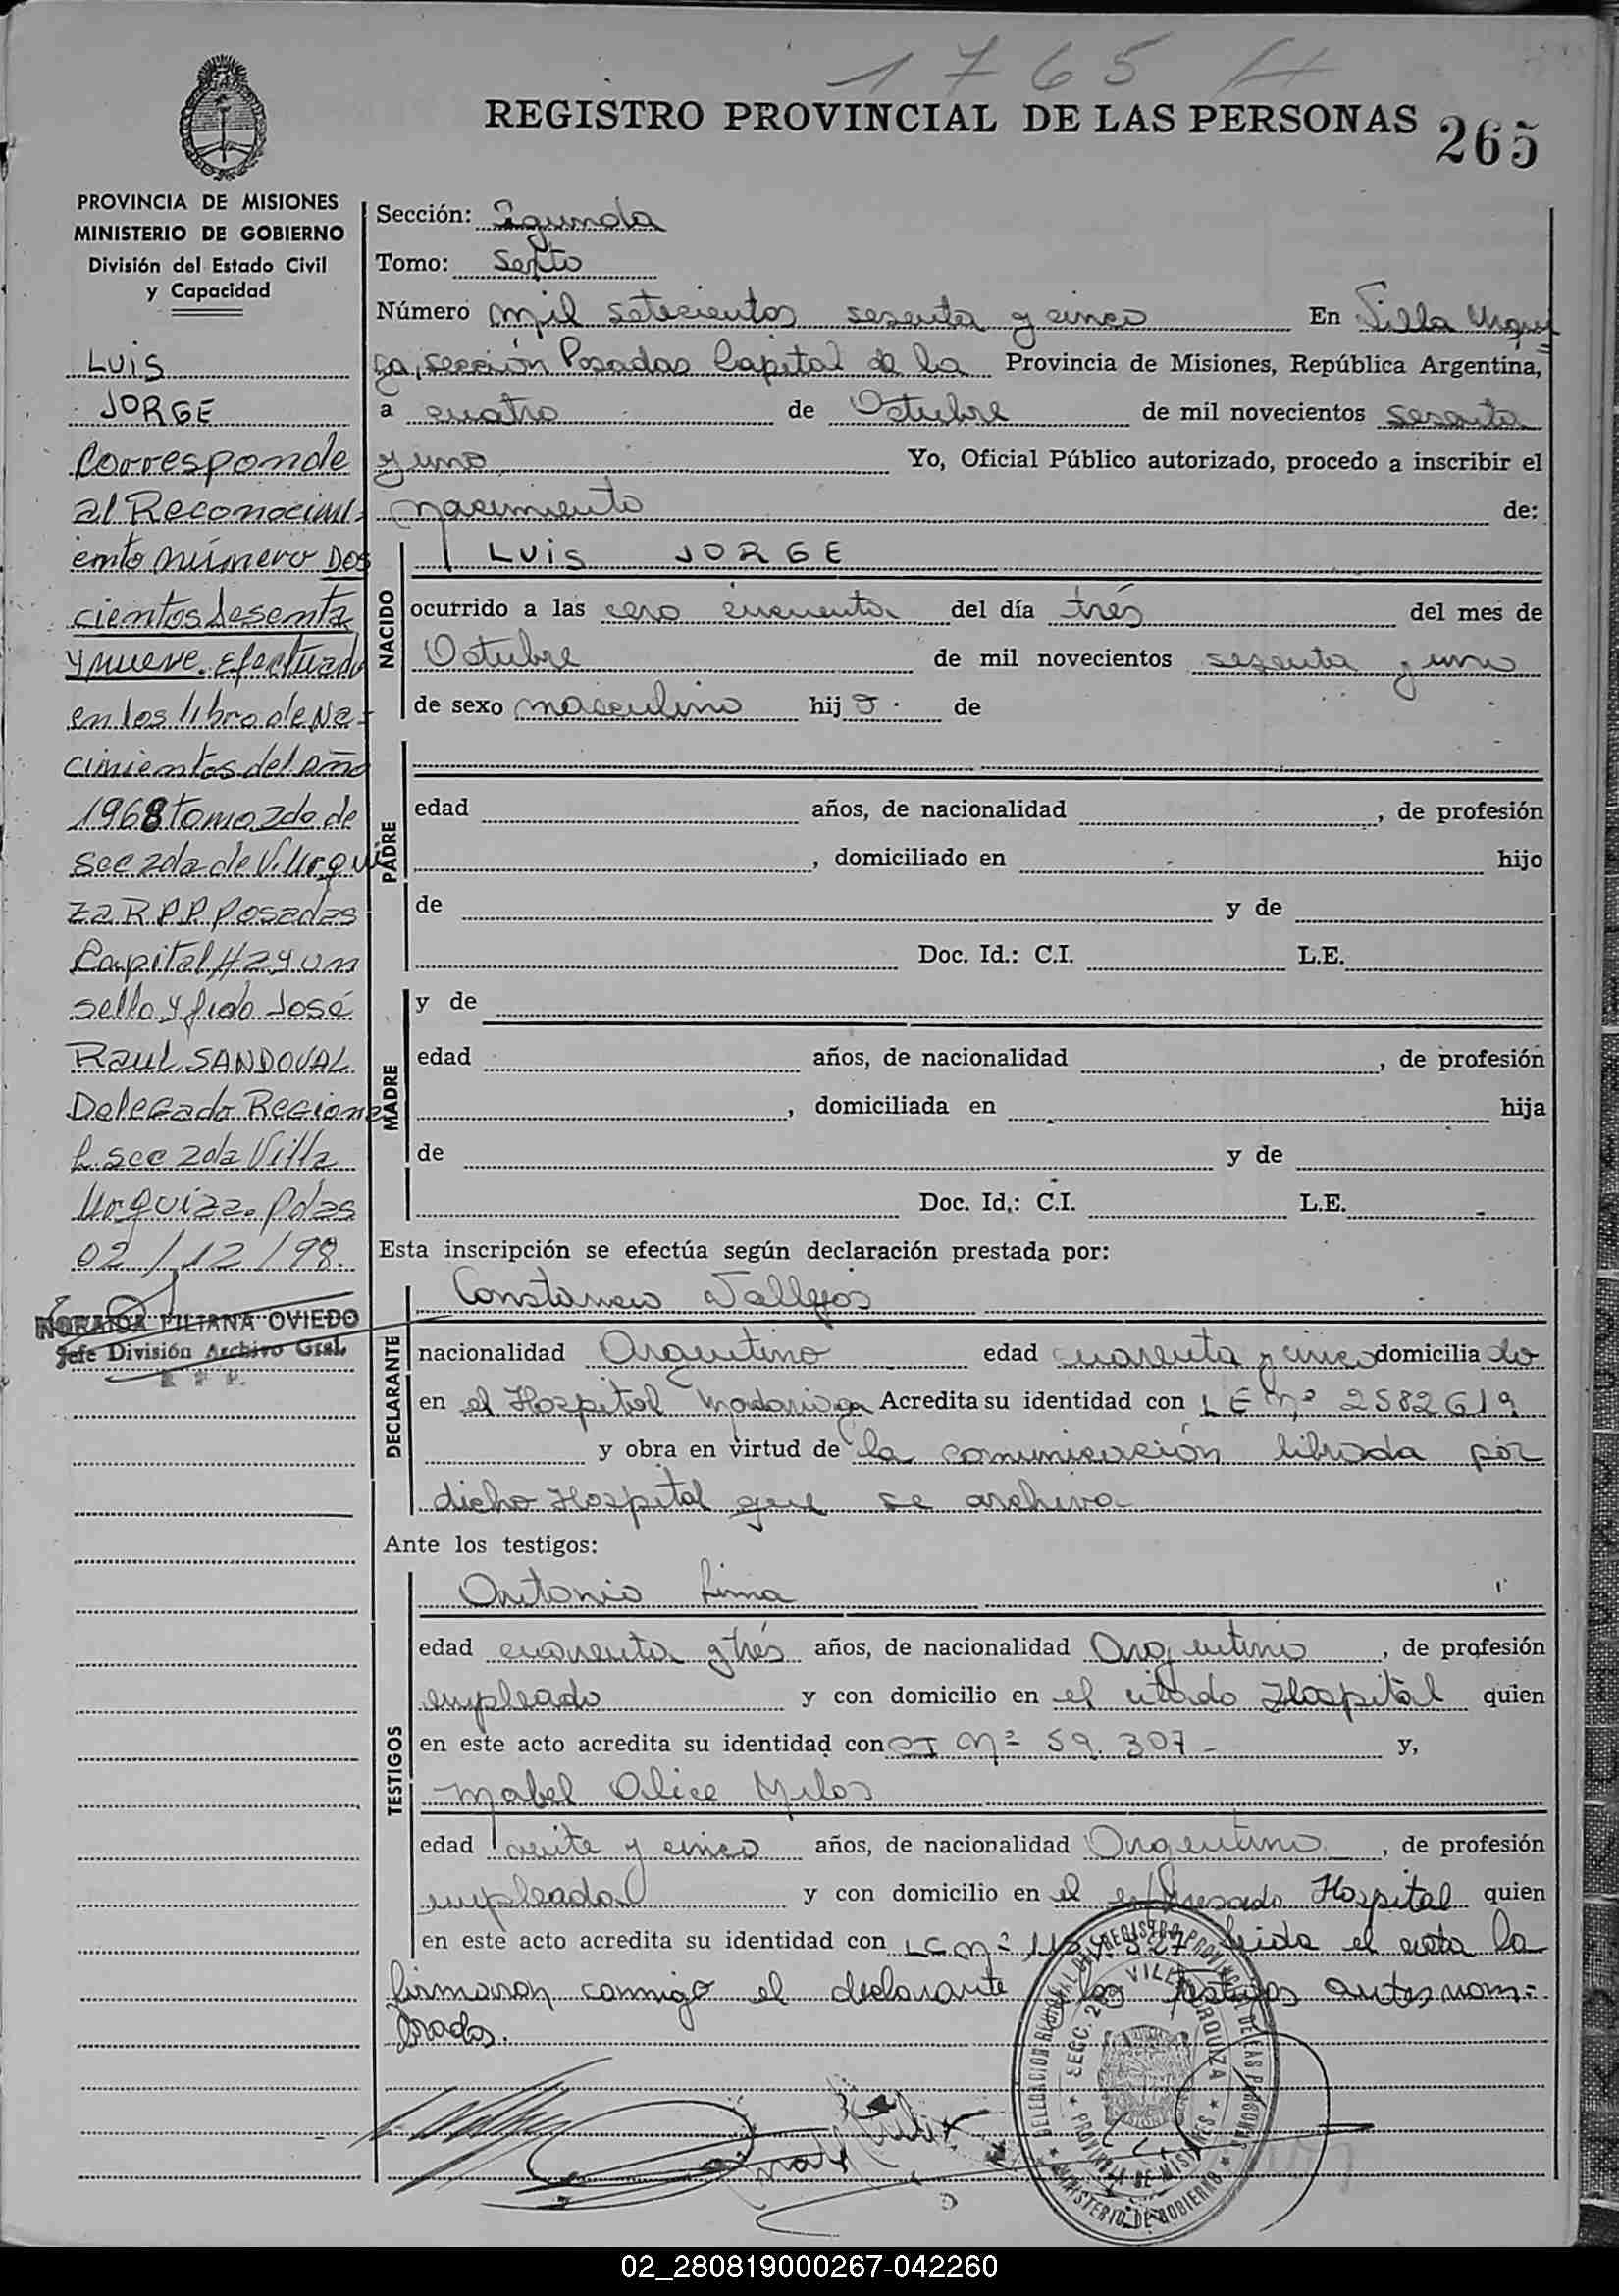 1765 H
REGISTRO PROVINCIAL DE LAS PERSONAS 265
PROVINCIA DE MISIONES
MINISTERIO DE GOBIERNO
División del Estado Civil
y Capacidad
LUIS
JORGE
Corresponde
al Reconocimi-
ento número Dos
cientos Sesenta
y nueve. Efectuado
en los libro de Na-
cimientos del Año
1968 tomo 2do de
Sec 2da de V. Urqui
za R.P.P. Posadas
Capital Hay un
sello y fido José
Raul SANDOVAL
Delegado Regiona
l. Sec 2da Villa
Urquiza. Pdas
02/12/98.
NORAIDA LILIANA OVIEDO
Jefe División Archivo Gral.
Sección: Segunda
Tomo: Sexto
Número mil setecientos sesenta y cinco En Villa Urqui
za, sección Posadas Capital de la Provincia de Misiones, República Argentina,
a cuatro de Octubre de mil novecientos sesenta
y uno Yo, Oficial Público autorizado, procedo a inscribir el
nacimiento de:
NACIDO
LUIS JORGE
ocurrido a las cero cincuenta del día trés del mes de
Octubre de mil novecientos sesenta y uno
de sexo masculino hijo. de
PADRE
edad años, de nacionalidad , de profesión
, domiciliado en hijo
de y de
Doc. Id.: C.I. L.E.
MADRE
y de
edad años, de nacionalidad , de profesión
, domiciliada en hija
de y de
Doc. Id,: C.I. L.E.
Esta inscripción se efectúa según declaración prestada por:
DECLARANTE
Constancio Vallejos
nacionalidad Argentino edad cuarenta y cinco domiciliado
en el Hospital Madariaga Acredita su identidad con L E nº 2582619
y obra en virtud de la comunicación librada por
dicho Hospital que se archiva
Ante los testigos:
TESTIGOS
Antonio Lima
edad cuarenta y trés años, de nacionalidad Argentino , de profesión
empleado y con domicilio en el citado Hospital quien
en este acto acredita su identidad con CI Nº 59.307- y,
Mabel Alice
edad veite y cinco años, de nacionalidad Argentina , de profesión
empleada y con domicilio en el expresado Hospital quien
en este acto acredita su identidad con LC nº leida el acta la
firmaron conmigo el declarante y los testigos antesnom-
brados.
DELEGACION REGIONAL DEL REGISTRO PROVINCIAL DE LAS PERSONAS
SEC. 2da VILLA URQUIZA
PROVINCIA DE MISIONES
MINISTERIO DE GOBIERNO
02_280819000267-042260